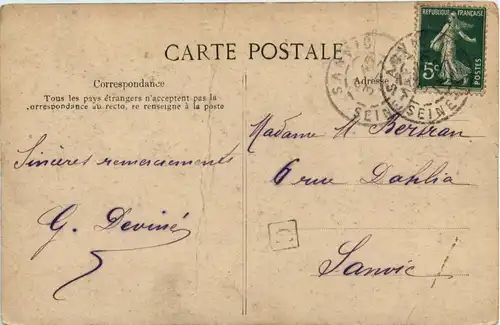 CARTE POSTALE
RÉPUBLIQUE FRANÇAISE
5c
Correspondance
Tous les pays étrangers n'acceptent pas la
correspondance au recto, se renseigne à la poste
Adresse
SANVIC
SEINE
Sincères remerciements
G. Deviné
Madame M. Bertran
6 rue Dahlia
Sanvic